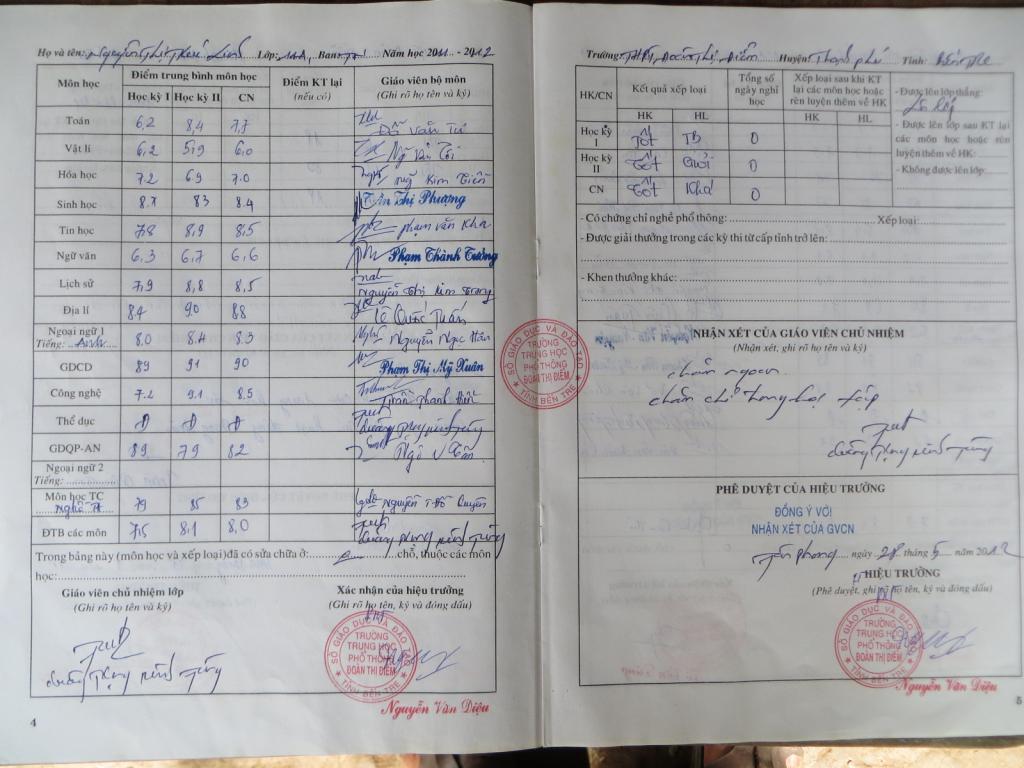 Họ và tên: Nguyễn Thị Lớp: 11A1 Ban: Năm học 2011 - 2012
Môn học Điểm trung bình môn học Điểm KT lại (nếu có) Giáo viên bộ môn (Ghi rõ họ tên và ký)
Học kỳ I Học kỳ II CN
Toán 6,2 8,4 7,7 Đỗ Văn Tư
Vật lí 6,2 5,9 6,0
Hóa học 7.2 6.9 7.0 Kim Tiến
Sinh học 8.7 83 8.4 Thị Phượng
Tin học 78 8,9 8,5 phạm văn Kha
Ngữ văn 6,3 6,7 6,6 Phạm Thành Tưởng
Lịch sử 7,9 8,8 8,5 Nguyễn Thị Kim Trang
Địa lí 84 90 88 Lê Quốc Tuấn
Ngoại ngữ 1 8.0 8.4 8.3 Nguyễn Ngọc Hân
Tiếng: Anh
GDCD 89 91 90 Phạm Thị Mỹ Xuân
Công nghệ 7.2 9.1 8.5 Trần Thanh
Thể dục Đ Đ Đ
GDQP-AN 89 79 82 Ngô
Ngoại ngữ 2
Tiếng:
Môn học TC 79 85 83 Nguyễn Quyên
Nghề
ĐTB các môn 7,5 8.1 8,0
Trong bảng này (môn học và xếp loại) đã có sửa chữa ở: chỗ, thuộc các môn
học:
Giáo viên chủ nhiệm lớp Xác nhận của hiệu trưởng
(Ghi rõ họ tên và ký) (Ghi rõ họ tên, ký và đóng dấu)
SỞ GIÁO DỤC VÀ ĐÀO TẠO
TRƯỜNG
TRUNG HỌC
PHỔ THÔNG
ĐOÀN THỊ ĐIỂM
TỈNH BẾN TRE
Nguyễn Văn Diệu
4
Trường: THPT Đoàn Thị Điểm Huyện: Thạnh Phú Tỉnh: Bến Tre
HK/CN Kết quả xếp loại Tổng số ngày nghỉ học Xếp loại sau khi KT lại các môn học hoặc rèn luyện thêm về HK
HK HL HK HL
Học kỳ I Tốt TB 0
Học kỳ II Tốt Giỏi 0
CN Tốt Khá 0
- Được lên lớp thẳng:
Lên lớp
- Được lên lớp sau KT lại
các môn học hoặc rèn
luyện thêm về HK:
- Không được lên lớp:
- Có chứng chỉ nghề phổ thông: Xếp loại:
- Được giải thưởng trong các kỳ thi từ cấp tỉnh trở lên:
- Khen thưởng khác:
SỞ GIÁO DỤC VÀ ĐÀO TẠO
TRƯỜNG
TRUNG HỌC
PHỔ THÔNG
ĐOÀN THỊ ĐIỂM
TỈNH BẾN TRE
NHẬN XÉT CỦA GIÁO VIÊN CHỦ NHIỆM
(Nhận xét, ghi rõ họ tên và ký)
chăm ngoan
chăm chỉ trong học tập
PHÊ DUYỆT CỦA HIỆU TRƯỞNG
ĐỒNG Ý VỚI
NHẬN XÉT CỦA GVCN
phong, ngày 28 tháng 5 năm 2012
HIỆU TRƯỞNG
(Phê duyệt, ghi rõ họ tên, ký và đóng dấu)
SỞ GIÁO DỤC VÀ ĐÀO TẠO
TRƯỜNG
TRUNG HỌC
PHỔ THÔNG
ĐOÀN THỊ ĐIỂM
TỈNH BẾN TRE
Nguyễn Văn Diệu
5